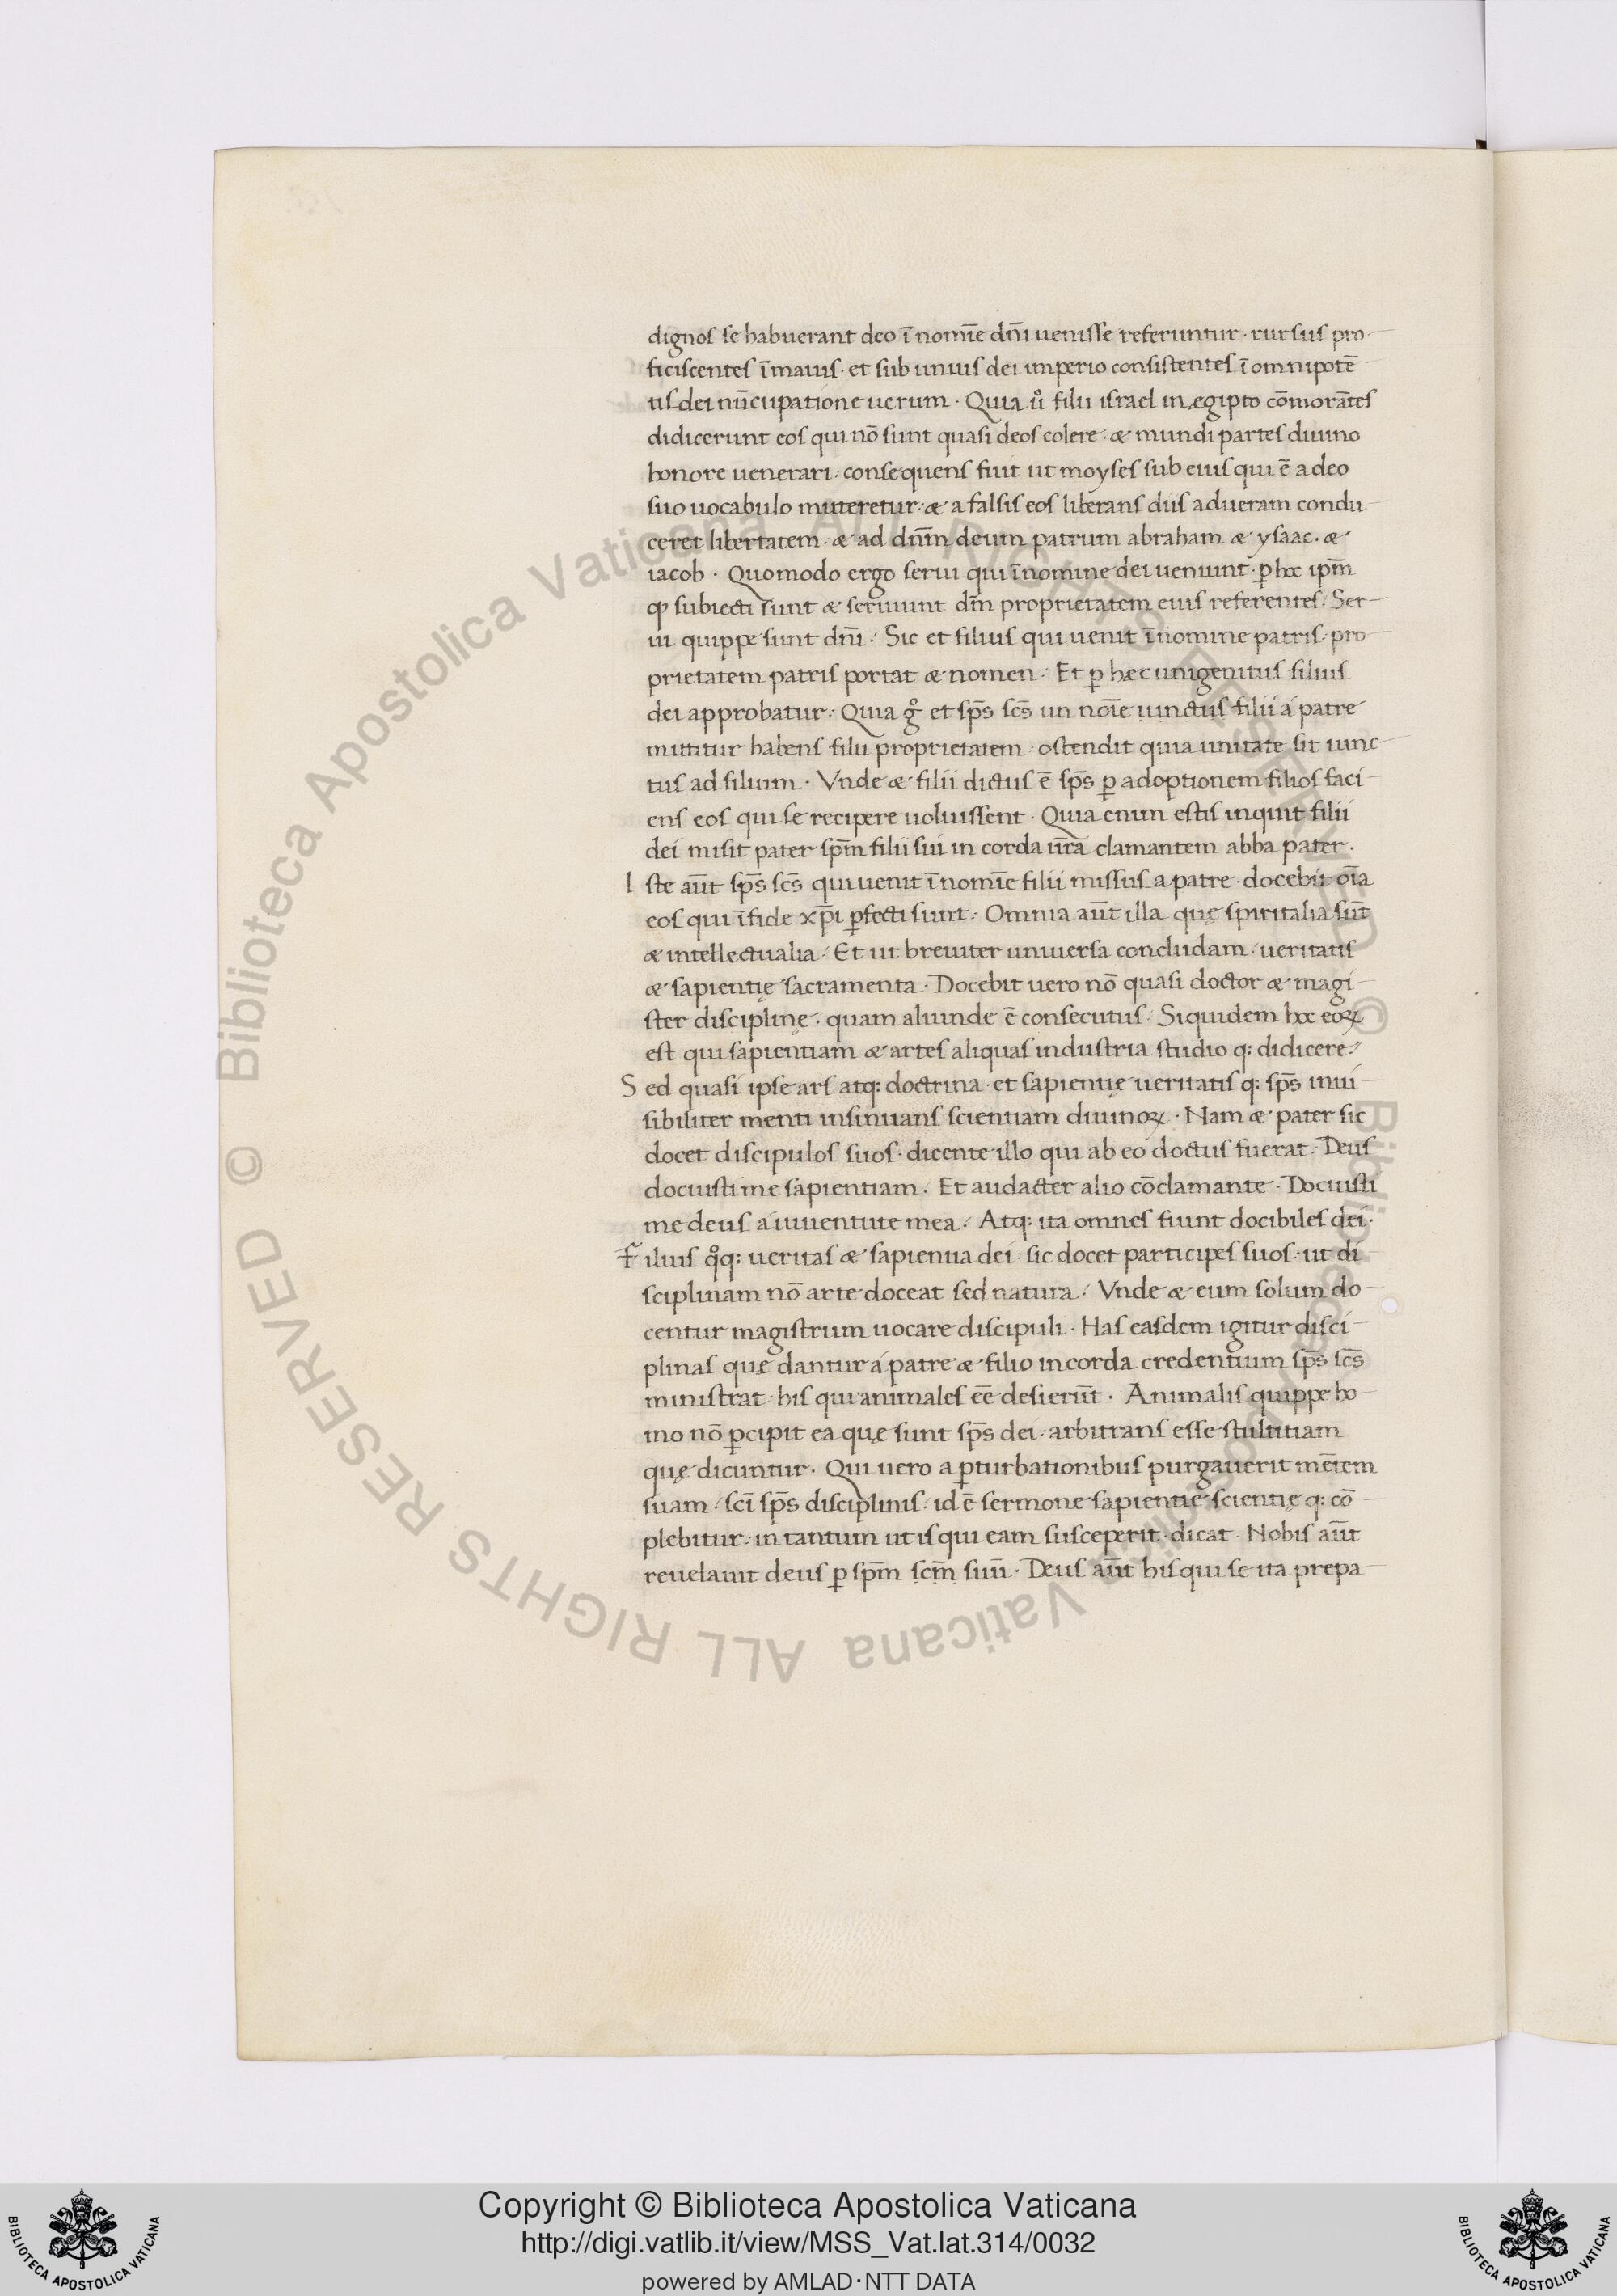 dignos se habuerant deo ī nomīe dn̄i uenisse referuntur · rursus pro-
ficiscentes ī maius · et sub unius dei imperio consistentes ī omnipotē
tis dei nūcupatione uerum · Quia uº filii israel in egipto cōmorātes
didicerunt eos qui nō sunt quasi deos colere · æ mundi partes diuino
honore uenerari · consequens fuit ut moyses sub eius qui ē a deo
suo uocabulo muteretur · æ a falsis eos liberans diis ad ueram condu-
ceret libertatem · æ ad dn̄m deum patrum abraham æ ysaac · æ
iacob · Quomodo ergo serui qui ī nomine dei ueniunt · ꝑ hoc ip̄m
ꝙ subiecti sunt æ seruiunt dn̄m proprietatem eius referentes · Ser-
ui quippe sunt dn̄i · Sic et filius qui uenit ī nomine patris · pro-
prietatem patris portat æ nomen · Et ꝑ hæc unigenitus filius
dei approbatur · Quia gº et sp̄s sc̄s un noīe iunctus filii á patre
mittitur habens filii proprietatem · ostendit quia unitate sit iunc-
tus ad filium · Vnde æ filii dictus ē sp̄s ꝑ adoptionem filios faci-
ens eos qui se recipere uoluissent · Quia enim estis inquit filii
dei misit pater sp̄m filii sui in corda ur̄a clamantem abba pater ·
I ste aūt sp̄s sc̄s qui uenit ī nomīe filii missus a patre · docebit oīa
eos qui ī fide xp̄i ꝑfecti sunt · Omnia aūt illa quę spiritalia sūt
æ intellectualia · Et ut breuiter uniuersa concludam · ueritatis
æ sapientię sacramenta · Docebit uero nō quasi doctor æ magi-
ster disciplinę · quam aliunde ē consecutus · Siquidem hoc eoꝝ
est qui sapientiam æ artes aliquas industria studio q: didicere ·
S ed quasi ipse ars atq: doctrina · et sapientię ueritatis q: sp̄s inui-
sibiliter menti insinuans scientiam diuinoꝝ · Nam æ pater sic
docet discipulos suos · dicente illo qui ab eo doctus fuerat · Deus
docuisti me sapientiam · Et audacter alio cōclamante · Docuisti
me deus a iuuentute mea · Atq: ita omnes fiunt docibiles dei ·
F ilius qºq: ueritas æ sapientia dei · sic docet participes suos · ut di-
sciplinam nō arte doceat sed natura · Vnde æ eum solum do-
centur magistrum uocare discipuli · Has easdem igitur disci-
plinas quę dantur á patre æ filio in corda credentium sp̄s sc̄s
ministrat · his qui animales eē desierūt · Animalis quippe ho-
mo nō ꝑcipit ea quę sunt sp̄s dei · arbitrans esse stultitiam
quę dicuntur · Qui uero a ꝑturbationibus purgauerit mētem
suam · sc̄i sp̄s disciplinis · id ē sermone sapientię scientię q: cō-
plebitur · in tantum ut is qui eam susceperit · dicat · Nobis aūt
reuelauit deus ꝑ sp̄m sc̄m suū · Deus aūt his qui se ita prepa-
© Biblioteca Apostolica Vaticana ALL RIGHTS RESERVED © Biblioteca Apostolica Vaticana ALL RIGHTS RESERVED
Copyright © Biblioteca Apostolica Vaticana
http://digi.vatlib.it/view/MSS_Vat.lat.314/0032
powered by AMLAD·NTT DATA
BIBLIOTECA APOSTOLICA VATICANA
BIBLIOTECA APOSTOLICA VATICANA